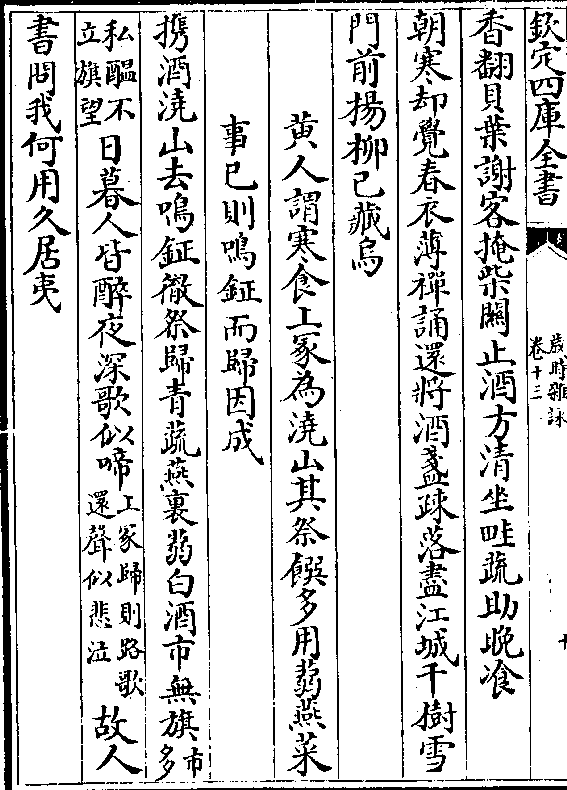 欽定四庫全書
歲時雜詠
卷十三
香翻貝葉謝客掩柴關止酒方清坐畦蔬助晚飡
朝寒却覺春衣薄禪誦還將酒盞疎落盡江城千樹雪
門前楊柳已藏烏
黃人謂寒食上冢為澆山其祭饌多用蒻燕菜
事已則鳴鉦而歸因成
携酒澆山去鳴鉦徹祭歸青蔬燕裏蒻白酒市無旗市多
私醞不立旗望日暮人皆醉夜深歌似啼上冢歸則路歌還聲似悲泣故人
書問我何用久居夷